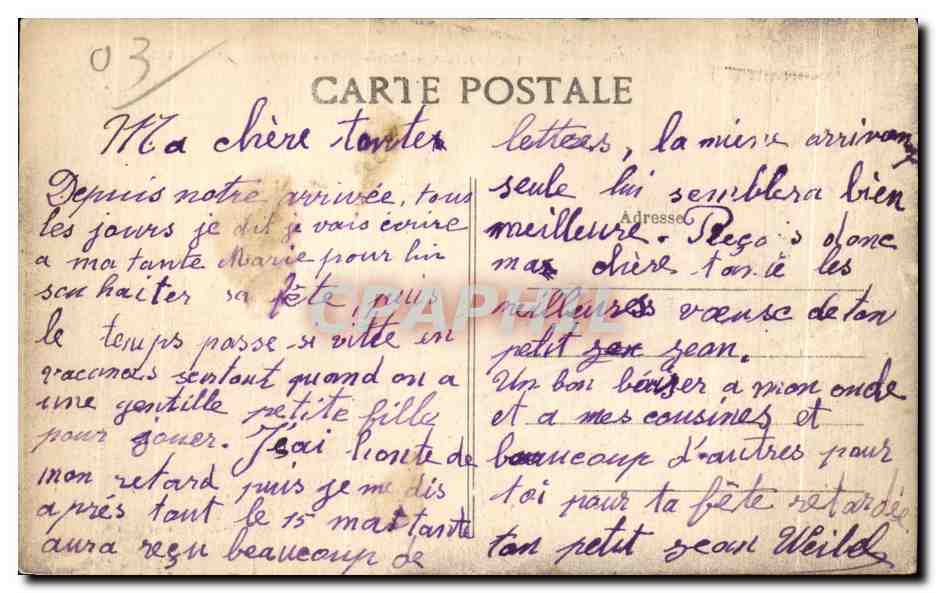 03
CARTE POSTALE
Ma chère tante
Depuis notre arrivée, tous
les jours je dit je vais écrire
a ma tante Marie pour lui
souhaiter sa fête, puis
le temps passe si vitte en
vacances surtout quand on a
une gentille petite fille
pour jouer. J'ai honte de
mon retard puis je me dis
après tout le 15 ma tante
aura reçu beaucoup de
lettres, la mienne arrivant
seule lui semblera bien
Adresse
meilleure. Reçois donc
ma chère tante les
meilleurs vœuse de ton
petit jean.
Un bon baiser a mon oncle
et a mes cousines, et
beaucoup d'autres pour
toi pour ta fête retardée
ton petit jean Weild
CPAPHIL